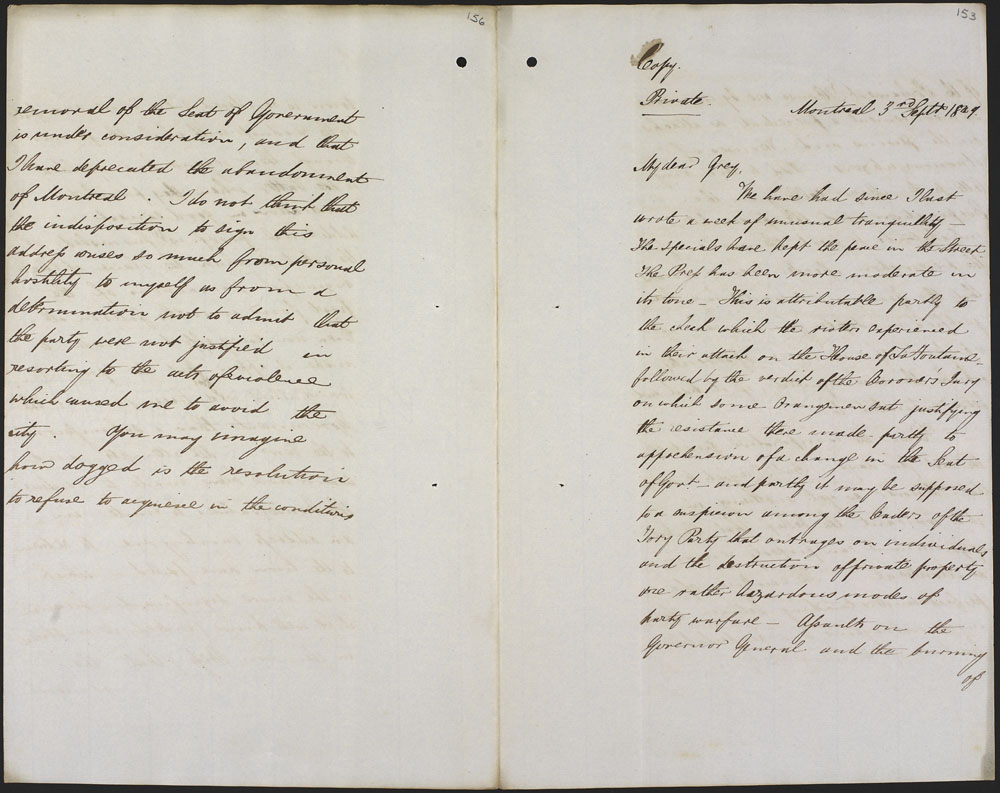 156
removal of the Seat of Government
is under consideration, and that
I have deprecated the abandonment
of Montreal. I do not think that
the indisposition to sign this
address arises so much from personal
hostility to myself as from a
determination not to admit that
the party were not justified in
resorting to the acts of violence
which caused me to avoid the
city. You may imagine
how dogged is the resolution
to refuse to acquiesce in the conditions
153
Copy.
Private.
Montreal 3rd Septr. 1849.
My dear Grey,
We have had since I last
wrote a week of unusual tranquillity –
The specials have kept the peace in the Street
The Press has been more moderate in
its tone – This is attributable partly to
the check which the rioters experienced
in their attack on the House of La Fontaine
followed by the verdict of the Coroner's Jury
on which some Orangemen sat justifying
the resistance there made – partly to
apprehension of a change in the Seat
of Govt – and partly it may be supposed
to a suspicion among the leaders of the
Tory Party that outrages on individuals
and the destruction of private property
are rather hazardous modes of
party warfare – Assaults on the
Governor General and the burning
of